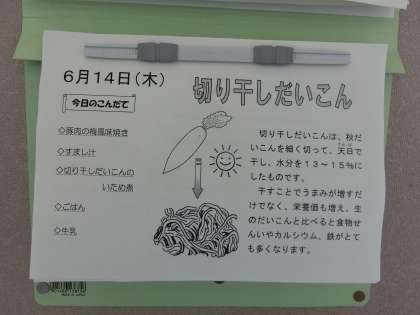 6月14日(木)
切り干しだいこん
今日のこんだて
◇豚肉の梅風味焼き
◇すまし汁
◇切り干しだいこんの
いため煮
◇ごはん
◇牛乳
切り干しだいこんは、秋だ
いこんを細く切って、天日で
干し、水分を13~15%に
したものです。
干すことでうまみが増すだ
けでなく、栄養価も増え、生
のだいこんと比べると食物せ
んいやカルシウム、鉄がとて
も多くなります。